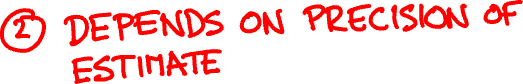 ② DEPENDS ON PRECISION OF
ESTIMATE